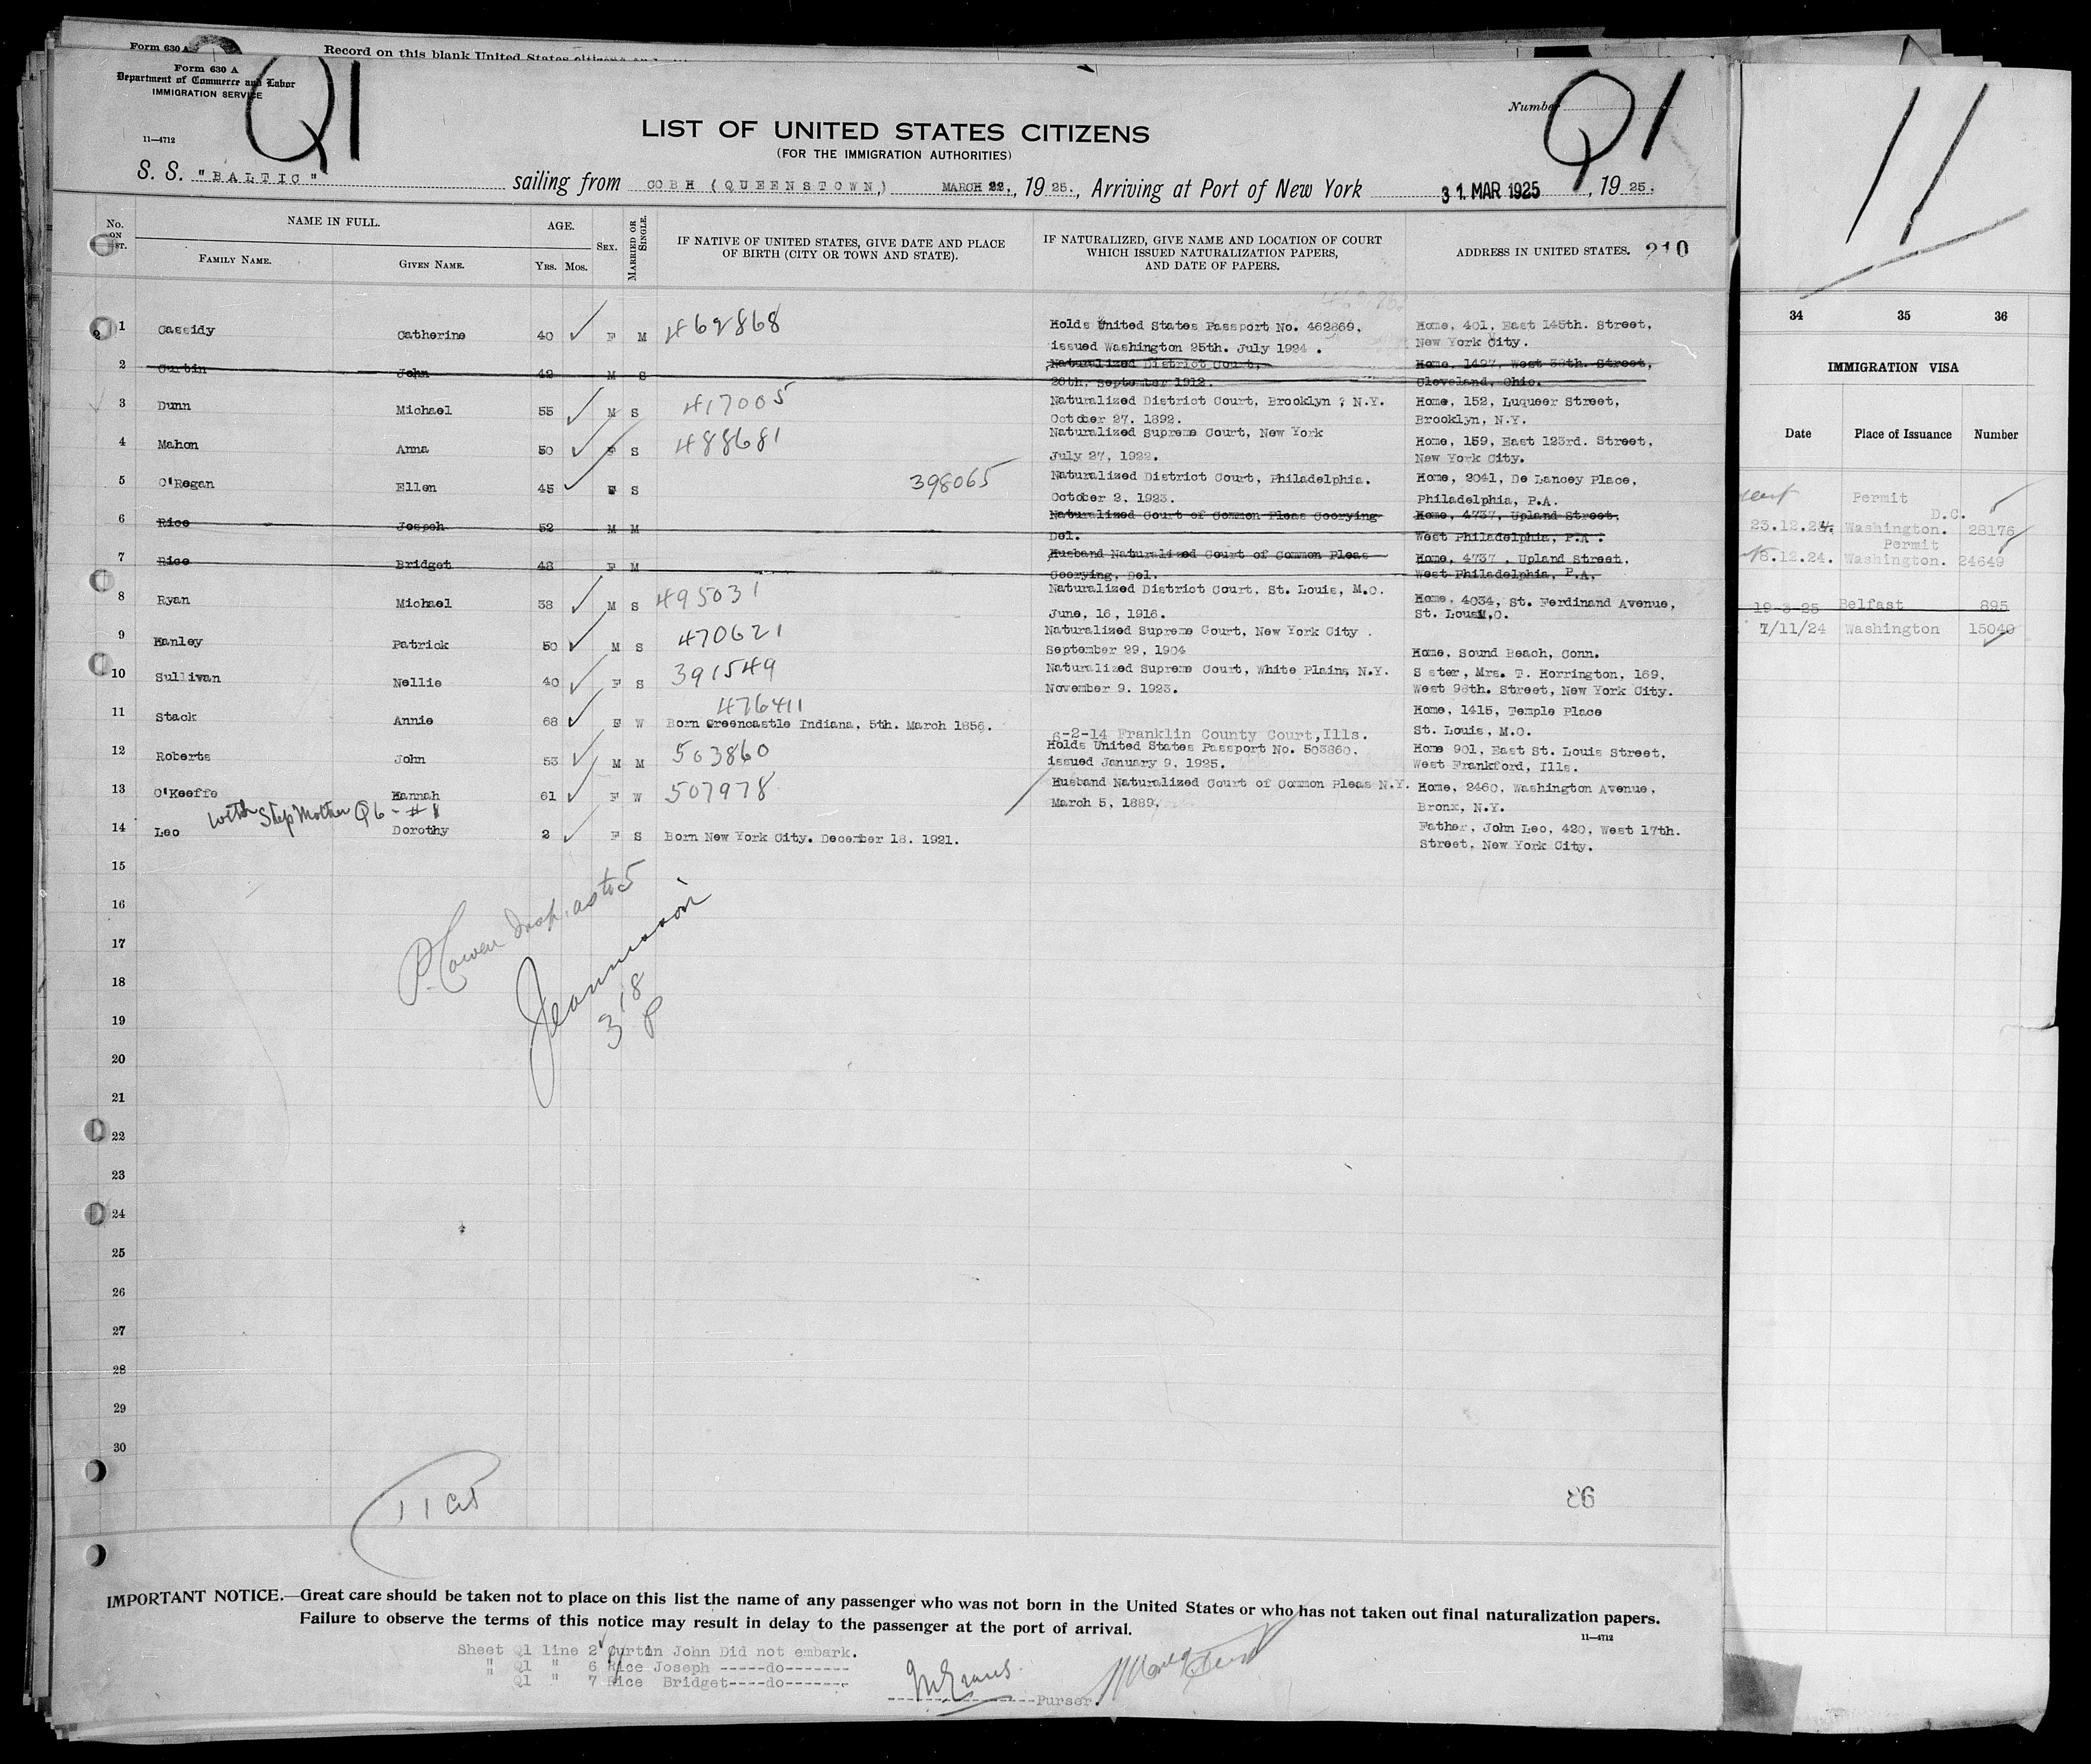 Form 630 A
Record on this blank United States citizens
Form 630 A
Department of Commerce and Labor
IMMIGRATION SERVICE
11—4712
Q1
Number
Q1
LIST OF UNITED STATES CITIZENS
(FOR THE IMMIGRATION AUTHORITIES)
S. S. "BALTIC" sailing from COBH (QUEENSTOWN,) MARCH 22., 1925., Arriving at Port of New York 31 MAR 1925, 1925.
No. ON ST.
NAME IN FULL.
FAMILY NAME. GIVEN NAME.
AGE.
YRS. MOS.
SEX.
MARRIED OR SINGLE.
IF NATIVE OF UNITED STATES, GIVE DATE AND PLACE
OF BIRTH (CITY OR TOWN AND STATE).
IF NATURALIZED, GIVE NAME AND LOCATION OF COURT
WHICH ISSUED NATURALIZATION PAPERS,
AND DATE OF PAPERS.
ADDRESS IN UNITED STATES. 210
1 Cassidy Catherine 40 F M 462868 Holds United States Passport No. 462869, Home, 401, East 145th. Street,
issued Washington 25th. July 1924 . New York City.
2 Curtin John 42 M S Naturalized District Court, Home, 1497, West 38th. Street,
20th, September 1912. Cleveland, Ohio.
3 Dunn Michael 55 M S 417005 Naturalized District Court, Brooklyn ? N.Y. Home, 152, Luqueer Street,
October 27. 1892. Brooklyn, N.Y.
4 Mahon Anna 50 F S 488681 Naturalized Supreme Court, New York Home, 159, East 123rd. Street,
July 27, 1922. New York City.
5 O'Regan Ellen 45 F S 398065 Naturalized District Court, Philadelphia. Home, 2041, De Lancey Place,
October 2, 1923. Philadelphia, P.A.
6 Rice Joseph 52 M M Naturalized Court of Common Pleas Coorying Home, 4737, Upland Street,
Del. West Philadelphia, P.A .
7 Rice Bridget 48 F M Husband Naturalized Court of Common Pleas Home, 4737 , Upland Street,
Coorying, Del. West Philadelphia, P.A,
8 Ryan Michael 38 M S 495031 Naturalized District Court, St. Louis, M.O. Home, 4034, St. Ferdinand Avenue,
June, 16, 1916. St. Louis M.O.
9 Hanley Patrick 50 M S 470621 Naturalized Supreme Court, New York City .
September 29, 1904 Home, Sound Beach, Conn.
10 Sullivan Nellie 40 F S 391549 Naturalized Supreme Court, White Plains, N.Y. S ster, Mrs. T. Horrington, 169,
November 9. 1923. West 98th. Street, New York City.
11 Stack Annie 68 F W 476411 Born Greencastle Indiana, 5th. March 1856. Home, 1415, Temple Place
St. Louis, M.O.
6-2-14 Franklin County Court, Ills.
12 Roberts John 53 M M 503860 Holds United States Passport No. 503860. Home 901, East St. Louis Street,
issued January 9, 1925. West Frankford, Ills.
13 O'Keeffe Hannah 61 F W 507978 Husband Naturalized Court of Common Pleas N.Y. Home, 2460, Washington Avenue,
March 5, 1889, Bronx, N.Y.
with Step Mother Q6 - #1
14 Leo Dorothy 2 F S Born New York City. December 18. 1921. Father, John Leo, 420, West 17th.
Street, New York City.
15
16
17
18
19
20
21
22
23
24
25
26
27
28
29
30
318
P
11
93
IMPORTANT NOTICE.—Great care should be taken not to place on this list the name of any passenger who was not born in the United States or who has not taken out final naturalization papers.
Failure to observe the terms of this notice may result in delay to the passenger at the port of arrival.
11—4712
Sheet Q1 line 2 Curtin John Did not embark.
" Q1 " 6 Rice Joseph -----do-------
" Q1 " 7 Rice Bridget----do-------
Purser.
11
34 35 36
IMMIGRATION VISA
Date Place of Issuance Number
Permit
D.C.
23.12.24. Washington. 28176
Permit
18.12.24. Washington. 24649
19-3-25 Belfast 895
7/11/24 Washington 15040